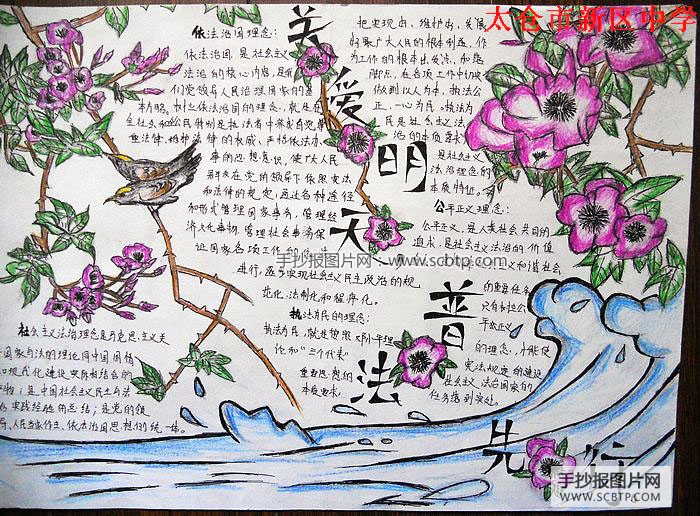 太仓市新区中学
关爱明天
普法先行
依法治国理念：
依法治国，是社会主义
法治的核心内容，是我
们党领导人民治理国家的基
本方略。树立依法治国的理念，就是在
重法律、维护法律的权威、严格依法办
事的思想意识，使广大人民
群众在党的领导下依照宪法
和法律的规定，通过各种途径
和形式管理国家事务，管理经
济文化事物，管理社会事务保
证国家各项工作
进行，逐步实现社会主义民主政治的规
范化、法制化和程序化。
执法为民的理念：
执法为民，就是按照邓小平理
论和“三个代表”
重要思想的
本质要求，
把实现好、维护好、发展
好最广大人民的根本利益，作
为工作的根本出发点
脚点，在各项工作中切实
做到以人为本，执法公
正，一心为民。执法为
民是社会主义法
治的本质要求
是社会主义
法治理念的
本质特征。
公平正义理念：
公平正义，是人类社会共同的
追求，是社会主义法治的价值
主义和谐社会
的重要任务
只有树立公
平正义
的理念，才能使
宪法规定的建设
社会主义法治国家的
任务落到实处。
社会主义法治理念是马克思主义关
国家与法的理论同中国国情
和现代化建设实际相结合的
物；是中国社会主义民主与法
实践经验的总结；是党的领
导、人民当家作主、依法治国思想的统一体。
手抄报图片网 - www.scbtp.com
手抄报图片网
WWW.SCBTP.COM